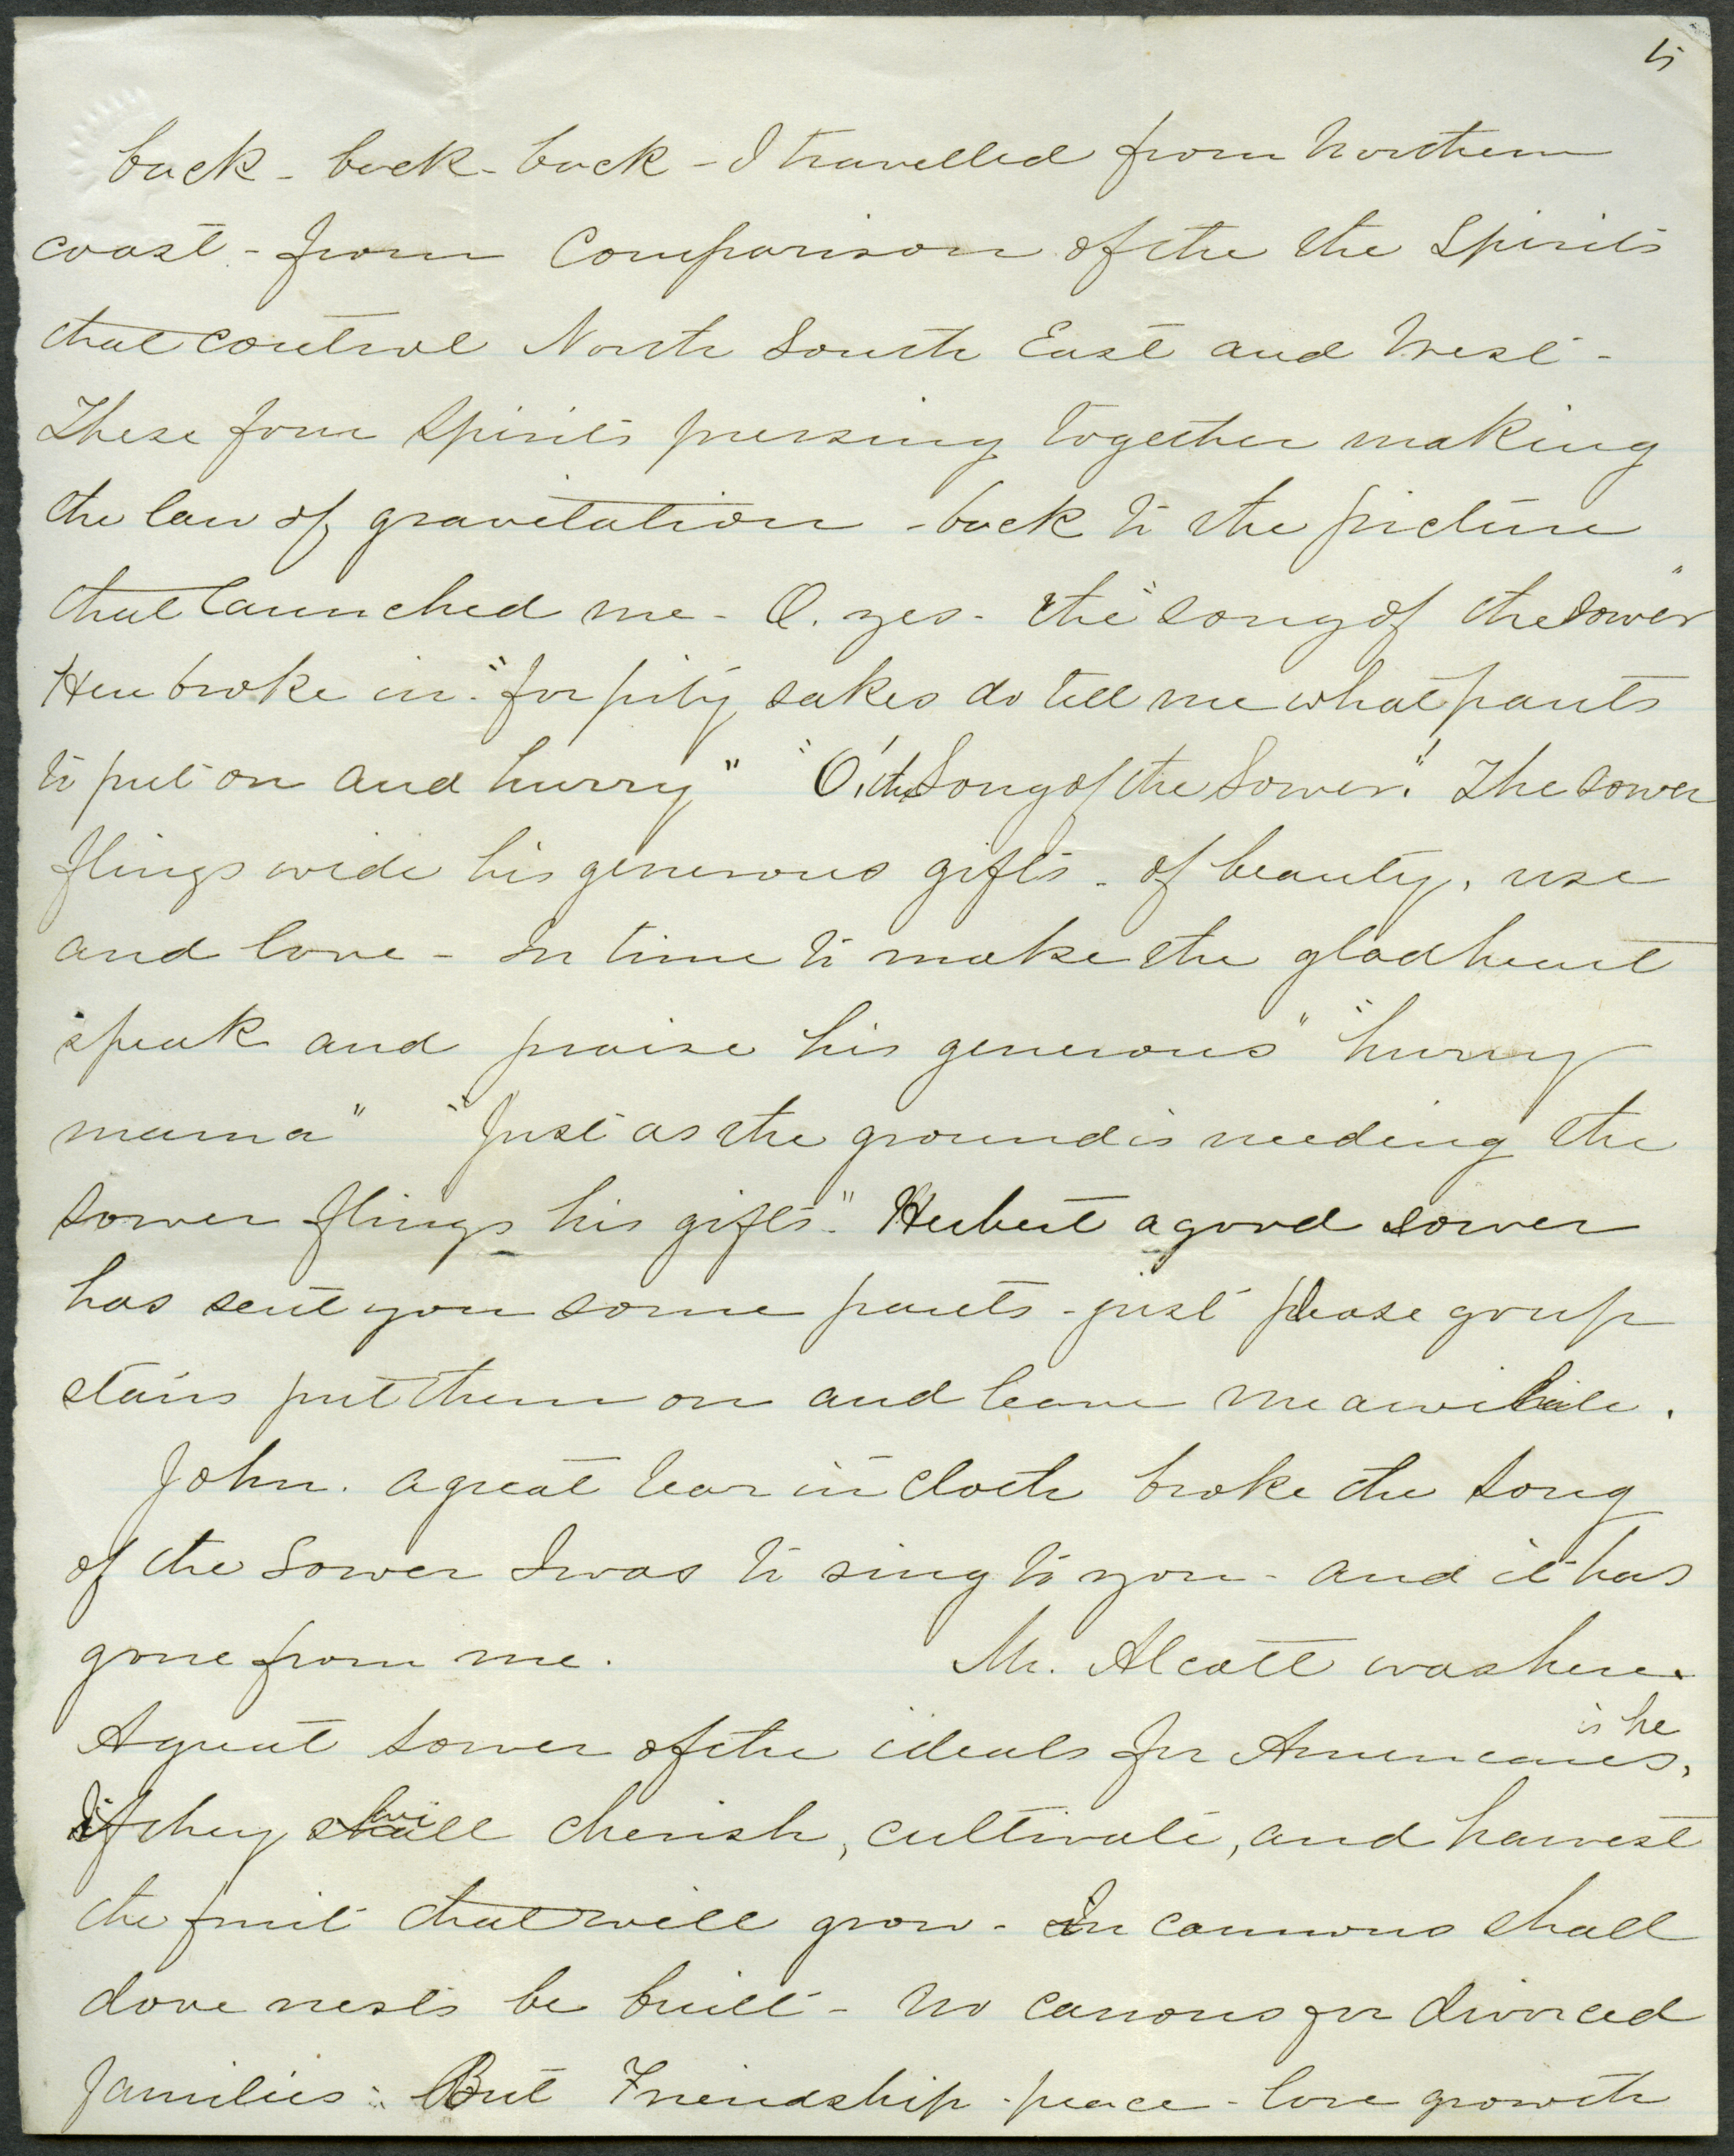 5
back - back - back - I travelled from Northern
coast - from Comparison of the the Spirits
that control North South East and West -
These four Spirits pressing together making
the law of gravitation - back to the picture
that launched me - O. yes - the "song of the Sower"
Hew broke in. "for pity sakes do tell me what pants
to put on and hurry" "O! the Song of the Sower!" The sower
flings wide his generous gifts - of beauty, use
and love - In time to make the glad heart
speak and praise his generous" "hurry
mama" "Just as the ground is needing the
sower flings his gifts." Herbert a good sower
has sent you some pants - just please go up
stairs put them on and leave me awhile.
John. a great tear in cloth broke the song
of the Sower I was to sing to you - and it has
gone from me. Mr. Alcott was here.
A great sower of the ideals for Americans is he,
if they will cherish, cultivate, and harvest
the fruit that will grow - In cannons shall
dove nests be built - No canons for divorced
families: But Friendship - peace - love growth